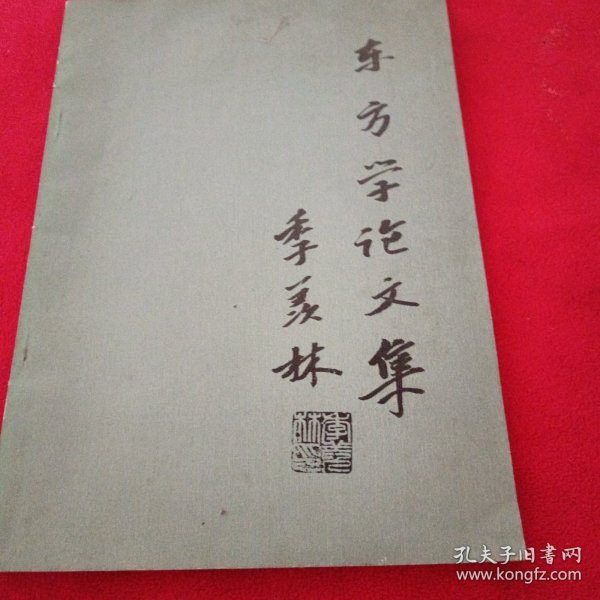 东方学论文集
季羡林
季羡林印
孔夫子旧书网
www.kongfz.com